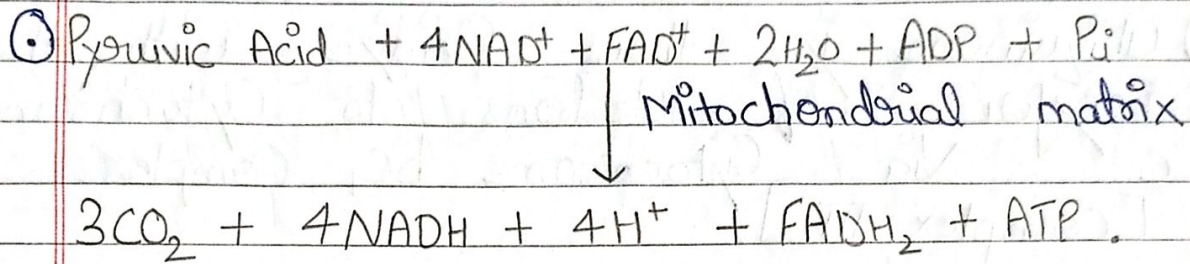 ⊙ Pyruvic Acid + 4NAD⁺ + FAD⁺ + 2H₂O + ADP + Pi
↓ Mitochondrial matrix
3CO₂ + 4NADH + 4H⁺ + FADH₂ + ATP.